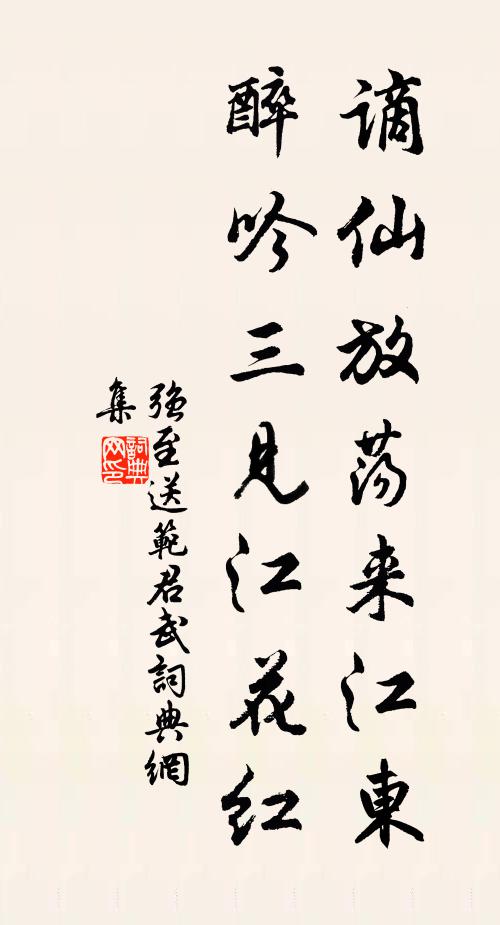 谪仙放荡来江東
醉吟三見江花红
强至送範君武詞典網
集
詞典
网印